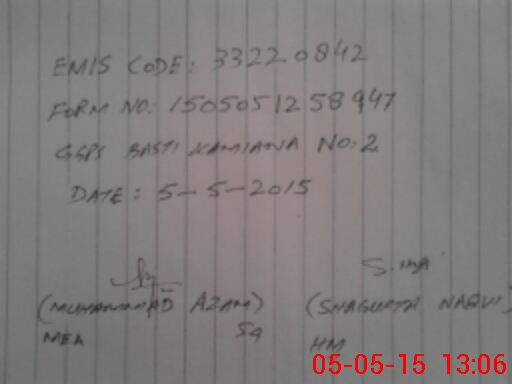 EMIS CODE: 33220842
FORM NO: 1505051258947
GGPS BASTI KAMIANA NO:2
DATE: 5-5-2015
S.ma
(MUHAMMAD AZAM) (SHAGUFTA NAQVI)
MEA 59 HM
05-05-15 13:06